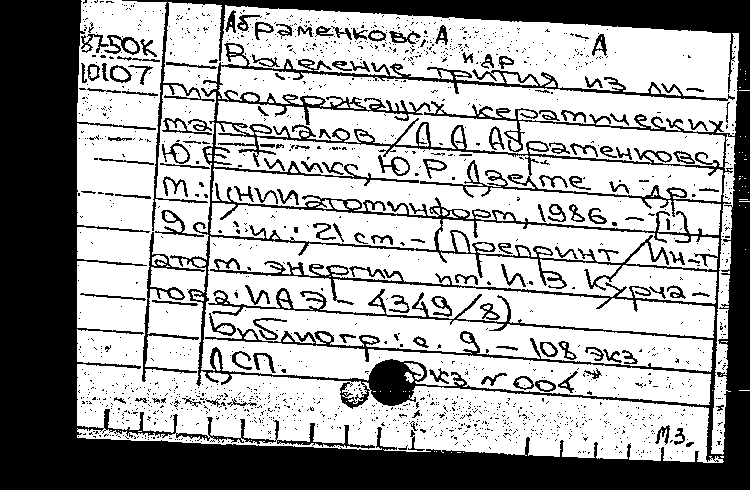 Абраменковс, А А
и др
87-50К
10107
Выделение трития из ли-
тийсодержащих керамических
материалов / А.А. Абраменковс,
Ю.Е. Тиликс, Ю.Р. Дзелме и др.-
М.: ЦНИИатоминформ, 1986. - [1],
9 с.: ил.; 21 см. - (Препринт / Ин-т
атом. энергии им. И.В. Курча-
това; ИАЭ - 4349/8).
Библиогр.: с. 9. - 108 экз.
ДСП. Экз № 004
М.З.